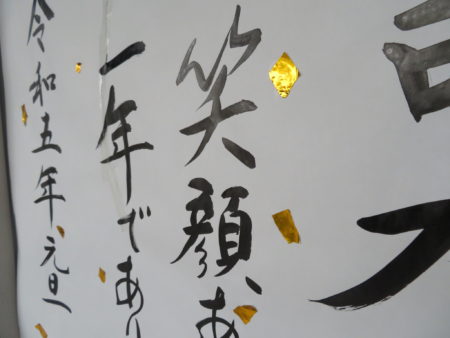 笑顔あ
一年であり
令和五年元旦